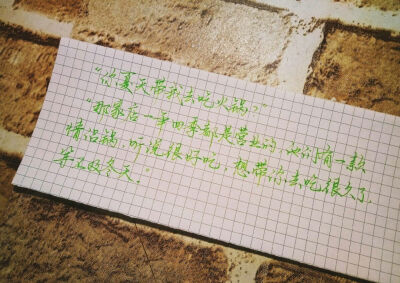 “你夏天带我去吃火锅？”
“那家店一年四季都是营业的，他们有一款
情侣锅，听说很好吃，想带你去吃很久了，
等不及冬天。”